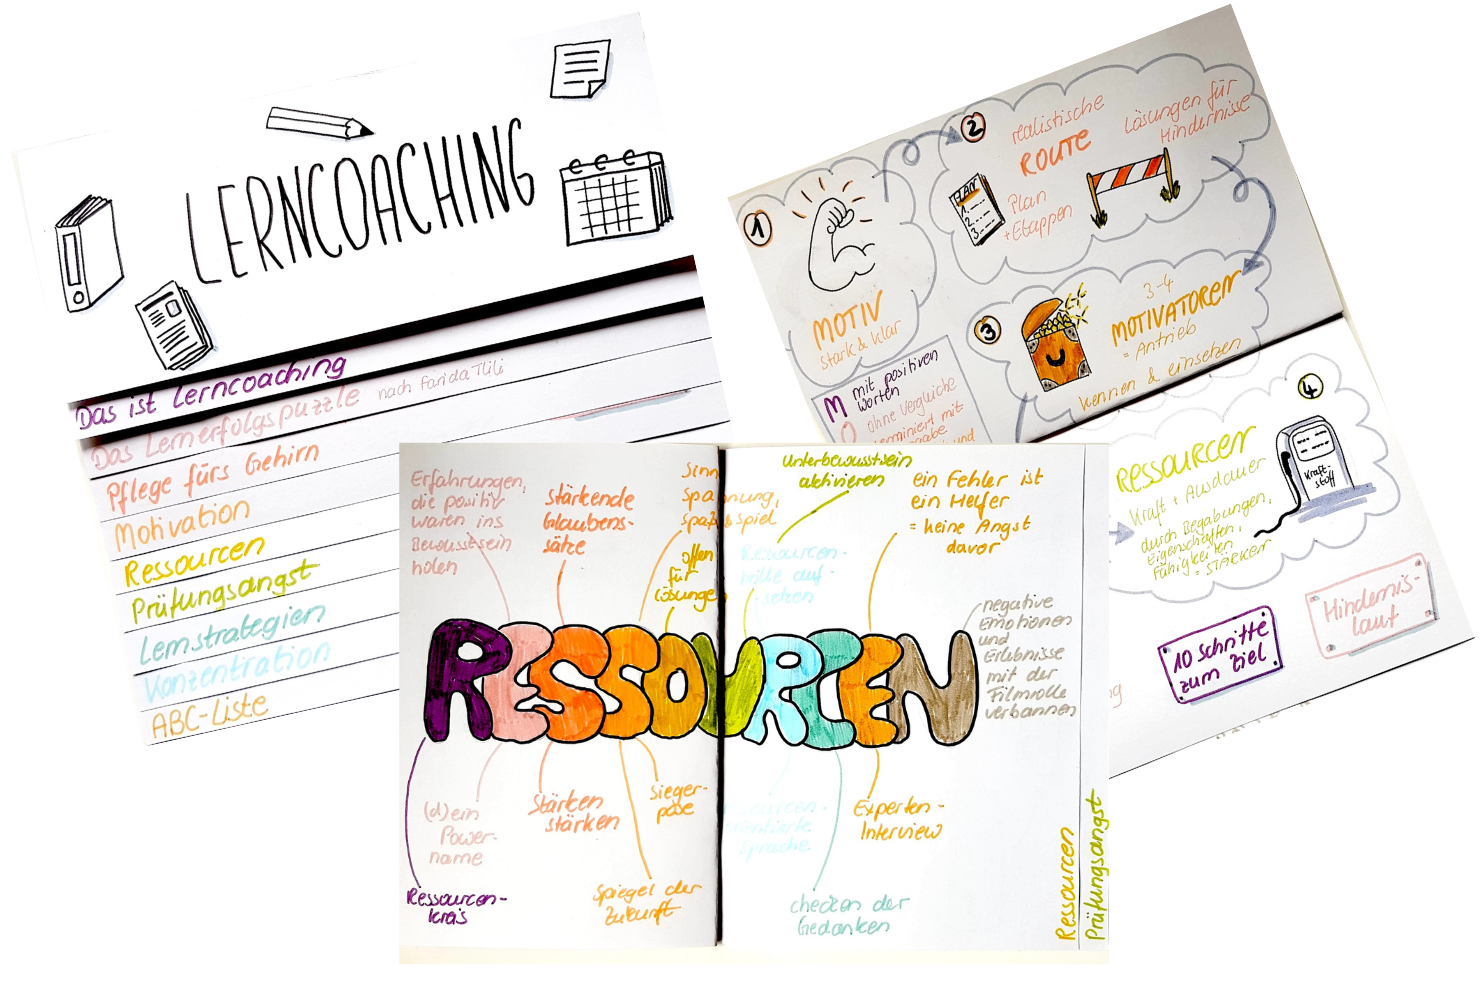 LERNCOACHING
Das ist Lerncoaching
Das Lernerfolgspuzzle nach Farida Tlili
Pflege fürs Gehirn
Motivation
Ressourcen
Prüfungsangst
Lernstrategien
Konzentration
ABC-Liste
1
MOTIV
stark & klar
2
realistische
ROUTE
Plan
+Etappen
PLAN
1.
2.
3.
Lösungen für
Hindernisse
3
3-4
MOTIVATOREN
= Antrieb
kennen & einsetzen
M mit positiven
Worten
O ohne Vergleiche
und
4
RESSOURCEN
Kraft + Ausdauer
durch Begabungen,
Eigenschaften,
Fähigkeiten
= STÄRKEN
Kraft-
stoff
10 Schritte
zum Ziel
Hindernis-
lauf
Erfahrungen,
die positiv
waren ins
Bewusstsein
holen
stärkende
Glaubens-
sätze
Sinn
Spannung,
Spaß & Spiel
offen
für
Lösungen
Unterbewusstsein
aktivieren
Ressourcen-
brille auf-
setzen
ein Fehler ist
ein Helfer
= keine Angst
davor
negative
Emotionen
und
Erlebnisse
mit der
Filmrolle
verbannen
RESSOURCEN
Ressourcen-
kreis
(d)ein
Power-
name
Stärken
stärken
Spiegel der
Zukunft
Sieger-
pose
Sprache
checken der
Gedanken
Experten-
Interview
Ressourcen
Prüfungsangst